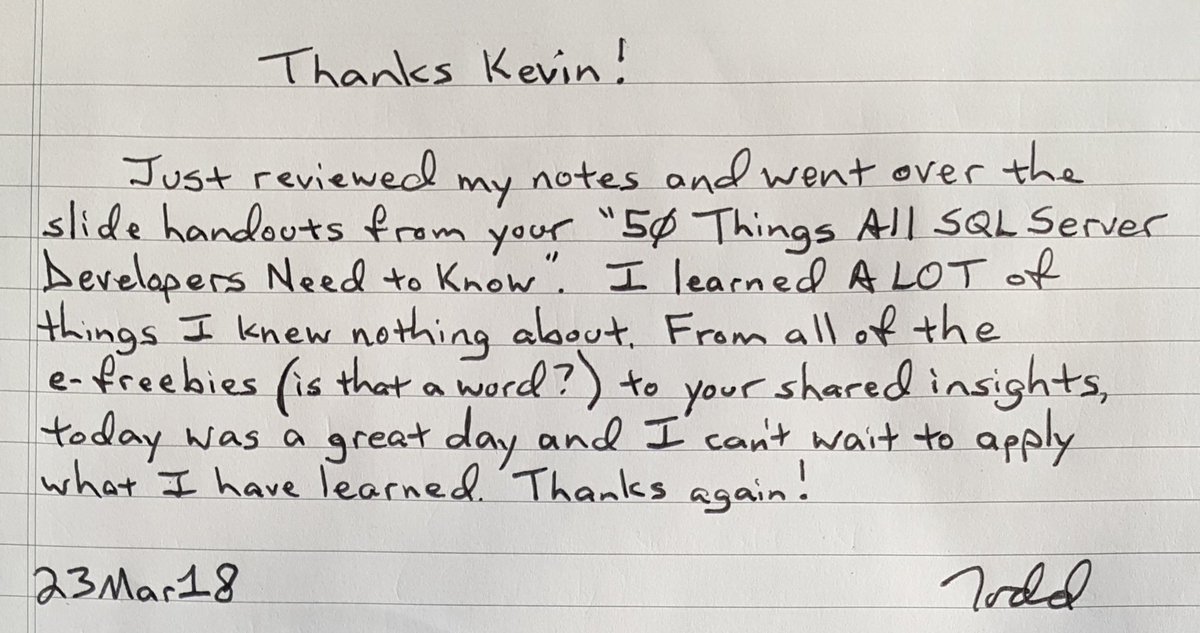 Thanks Kevin!
Just reviewed my notes and went over the
slide handouts from your "5Ø Things All SQL Server
Developers Need to Know". I learned A LOT of
things I knew nothing about. From all of the
e-freebies (is that a word?) to your shared insights,
today was a great day and I can't wait to apply
what I have learned. Thanks again!
23Mar18 Todd